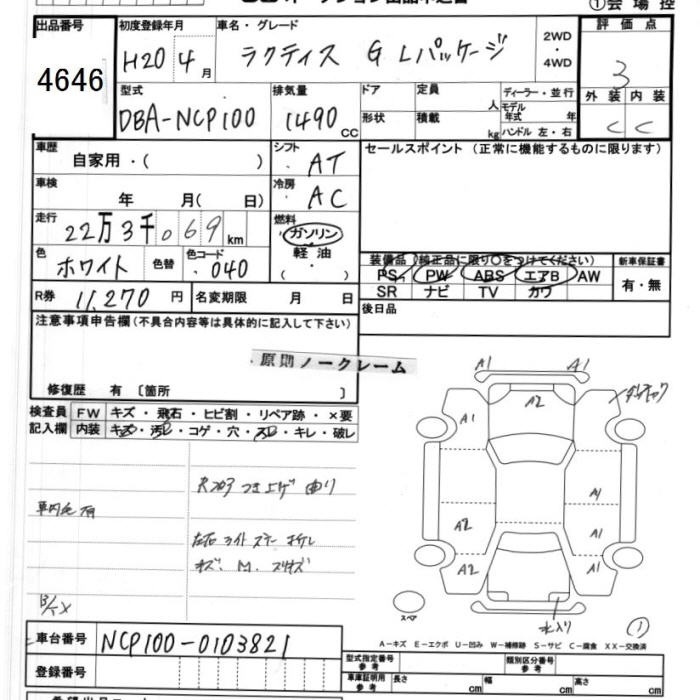 ①会場控
出品番号 初度登録年月 車名・グレード 評価点
4646 H20年4月 ラクティス G Lパッケージ 2WD・4WD 3
型式 排気量 ドア 定員 人 ディーラー・並行 外装 内装
DBA-NCP100 1490cc 形状 積載 kg モデル年式 年 ハンドル 左・右 C C
車歴 自家用・( ) シフト AT セールスポイント(正常に機能するものに限ります)
車検 年 月( 日) 冷房 AC
走行 22万3千069km 燃料 ガソリン・軽油 ( ・ )
色 ホワイト 色替 色コード 040
装備品(純正品に限り○をつけてください) 新車保証書
PS PW ABS エアB AW 有・無
SR ナビ TV カワ
R券 11,270円 名変期限 月 日 後日品
注意事項申告欄(不具合内容等は具体的に記入して下さい)
原則ノークレーム
修復歴 有 〔箇所 〕
検査員 FW キズ・飛石・ヒビ割・リペア跡・×要
記入欄 内装 キズ・汚レ・コゲ・穴・スレ・キレ・破レ
A1 A1
A2
A1
A1
A2 A1
A2 A1
スペア
①
A-キズ E-エクボ U-凹み W-補修跡 S-サビ C-腐食 XX-交換済
車台番号 NCP100-0103821
登録番号
型式指定番号 参考 類別区分番号 参考
車庫証明用 参考 長さ cm 幅 cm 高さ cm